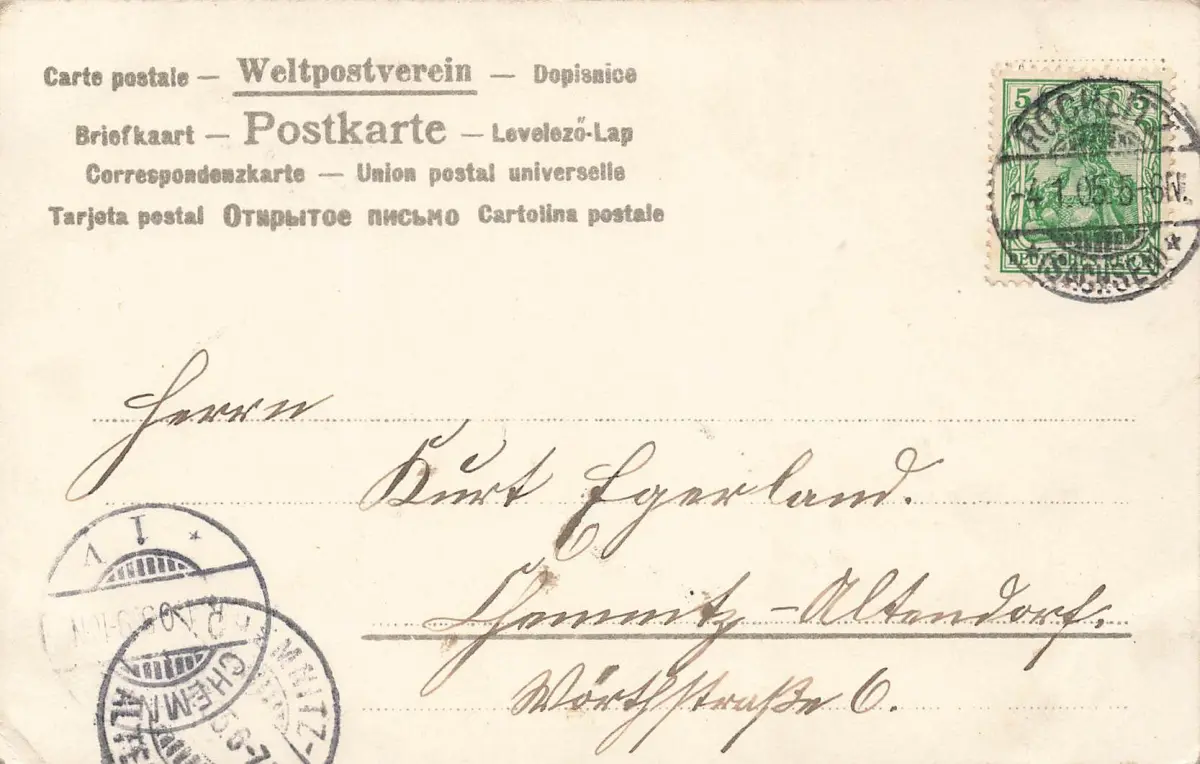 Carte postale — Weltpostverein — Dopisnice
Briefkaart — Postkarte — Levelező-Lap
Correspondenzkarte — Union postal universelle
Tarjeta postal Открытое письмо Cartolina postale
5 5
ROCHLITZ
-4.1.05.5-6N.
DEUTSCHES REICH
* (SACHSEN) *
Herrn
Kurt Egerland.
Chemnitz-Altendorf.
Wörthstraße 6.
* 1 V
CHEMNITZ-